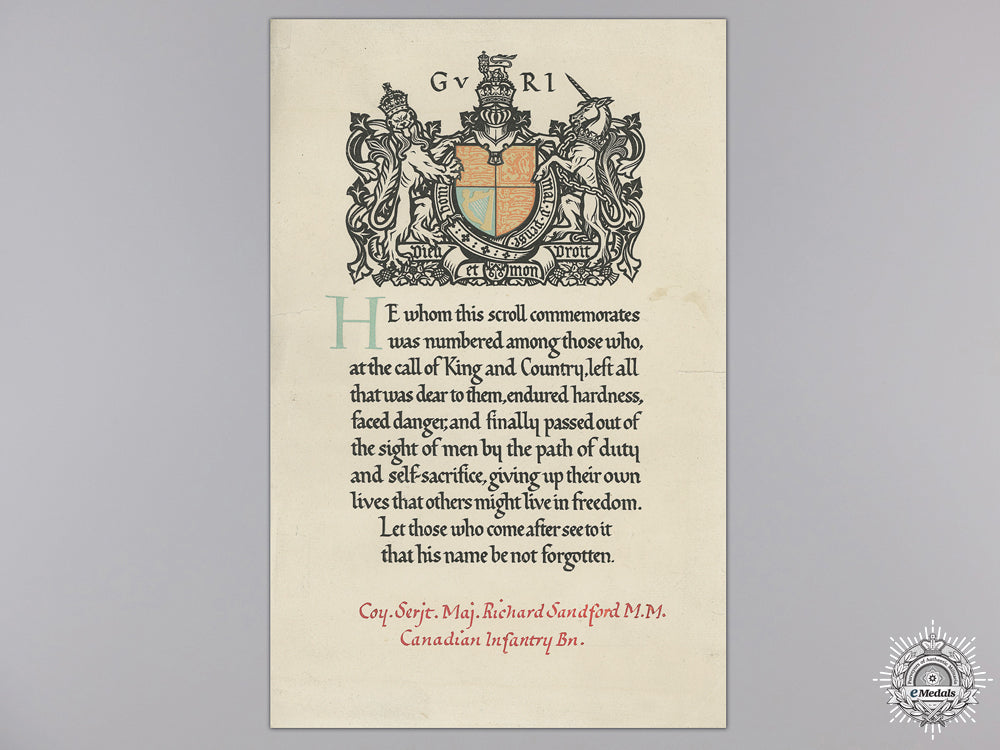 GV RI
honi
mal·y·pense
Dieu
Droit
et mon
HE whom this scroll commemorates
was numbered among those who,
at the call of King and Country, left all
that was dear to them, endured hardness,
faced danger, and finally passed out of
the sight of men by the path of duty
and self-sacrifice, giving up their own
lives that others might live in freedom.
Let those who come after see to it
that his name be not forgotten.
Coy. Serjt. Maj. Richard Sandford M.M.
Canadian Infantry Bn.
Purveyors of Authentic Militaria
eMedals